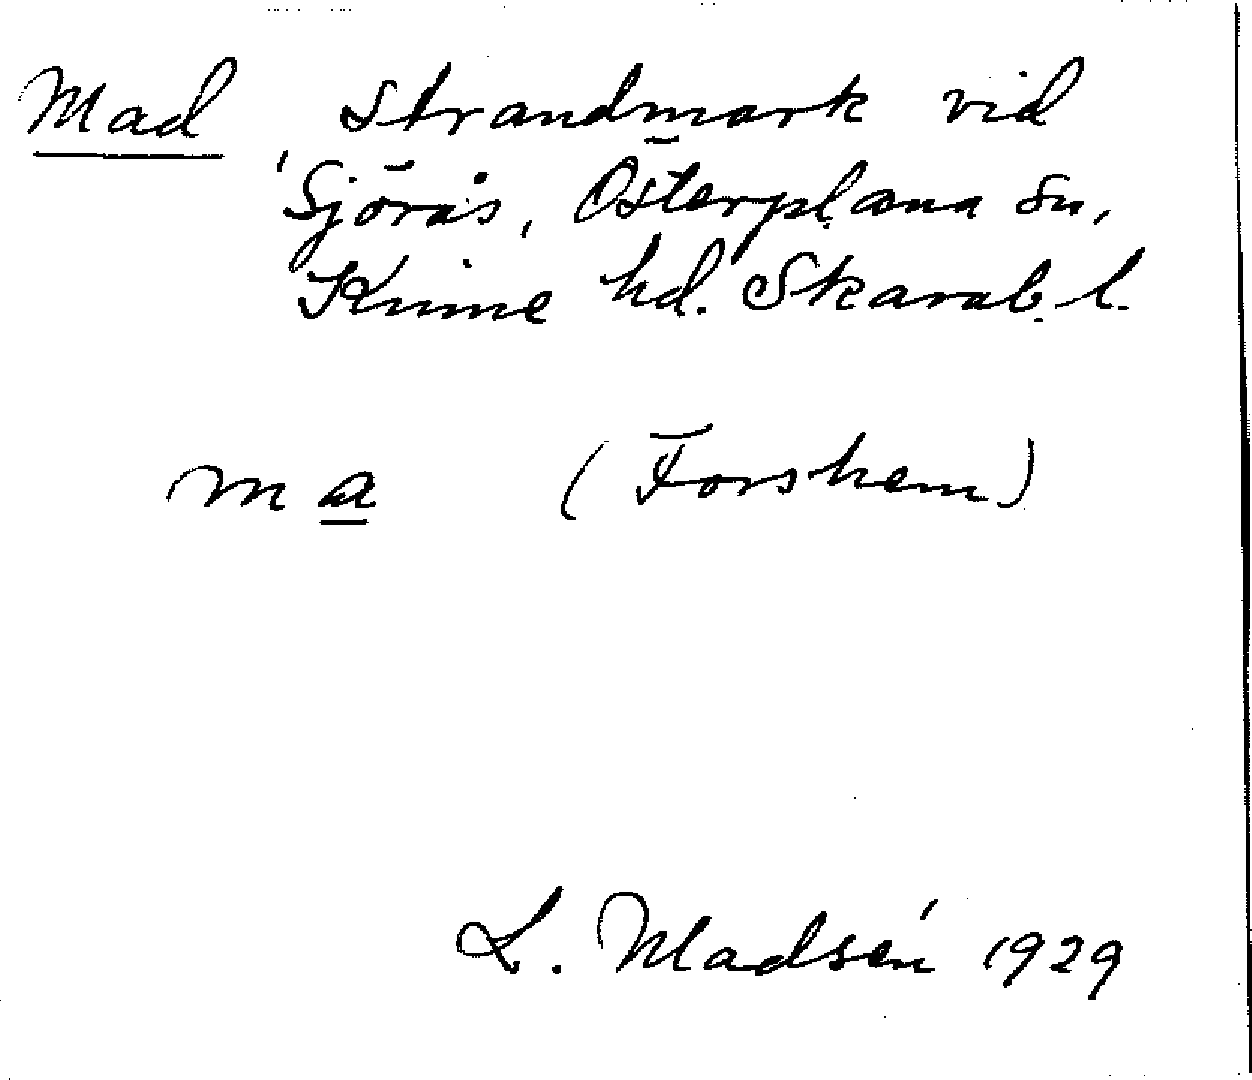 Mad Strandmark vid
Sjörås, Österplana sn,
Kinne hd. Skarab. l.
ma (Forshem)
L. Madsén 1929